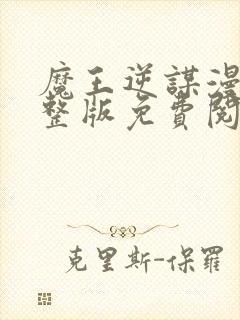 魔王逆謀漫
整版免費閱
克里斯-保羅